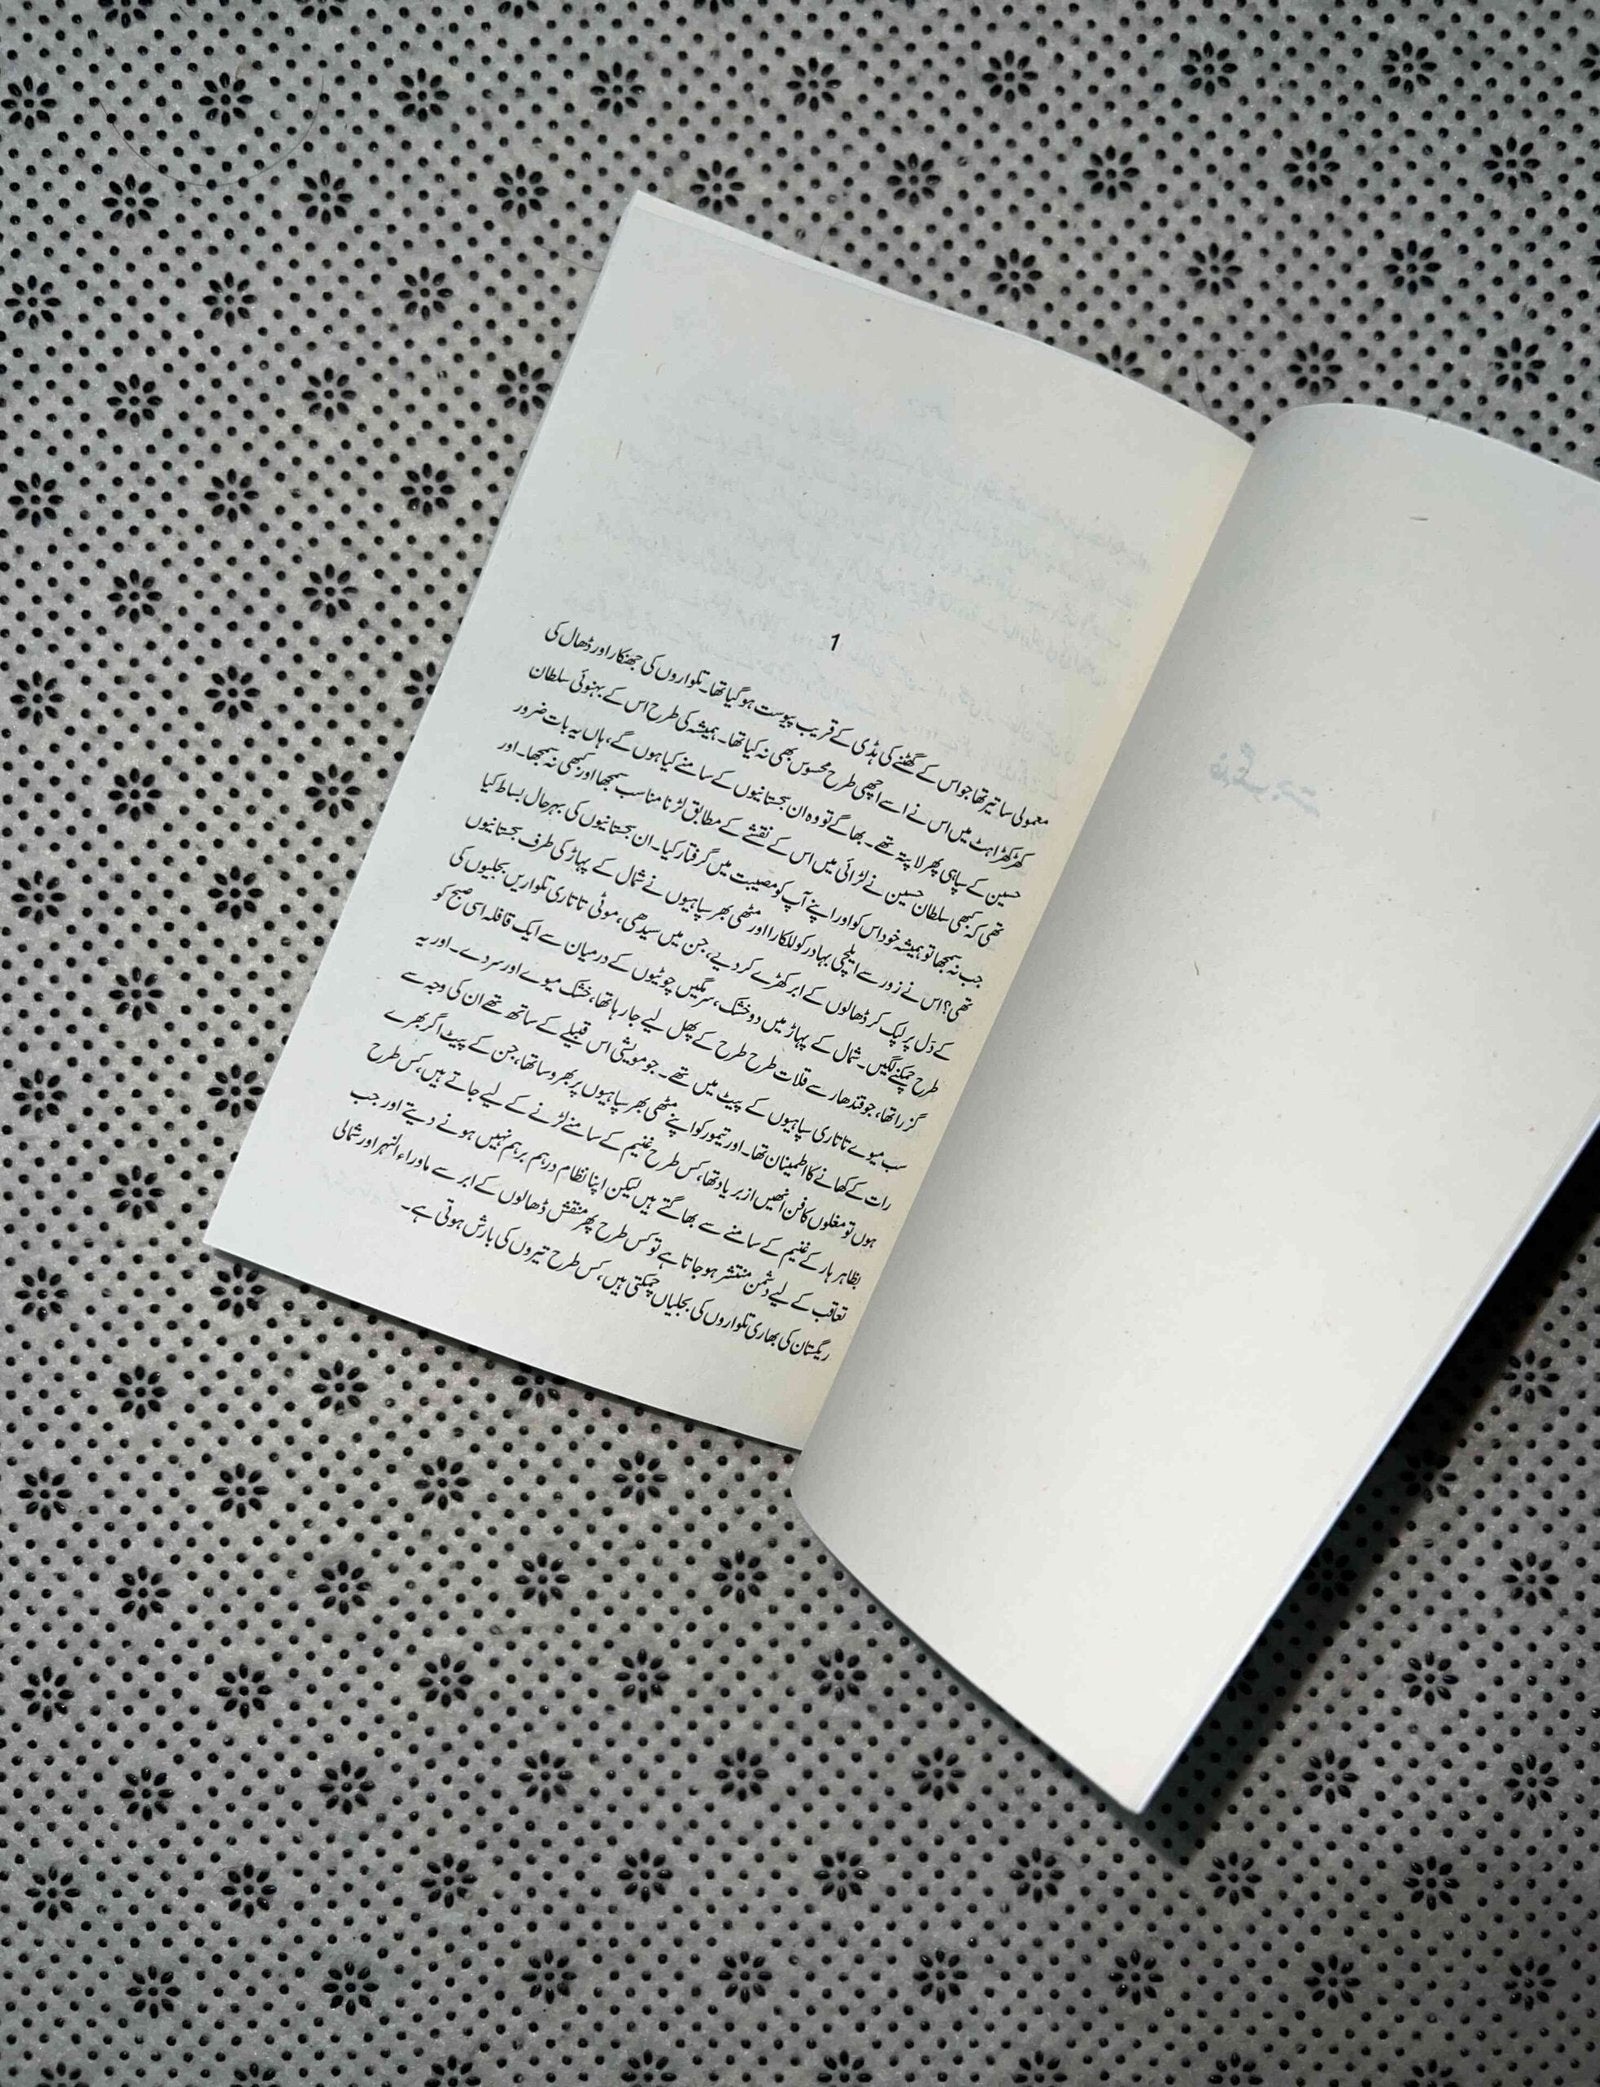 1
معمولی سا تیر تھا جو اس کے گھٹنے کی ہڈی کے قریب پیوست ہو گیا تھا۔ تلواروں کی جھنکار اور ڈھال کی
کھڑکھڑاہٹ میں اس نے اسے اچھی طرح محسوس بھی نہ کیا تھا۔ ہمیشہ کی طرح اس کے بہنوئی سلطان
حسین کے سپاہی پھر لاپتہ تھے۔ بھاگے تو وہ ان سجستانیوں کے سامنے کیا ہوں گے، ہاں یہ بات ضرور
تھی کہ کبھی سلطان حسین نے لڑائی میں اس کے نقشے کے مطابق لڑنا مناسب سمجھا اور کبھی نہ سمجھا۔ اور
جب نہ سمجھا تو ہمیشہ خود اس کو اور اپنے آپ کو مصیبت میں گرفتار کیا۔ ان سجستانیوں کی بہرحال بساط کیا
تھی؟ اس نے زور سے ایلچی بہادر کو للکارا اور مٹھی بھر سپاہیوں نے شمال کے پہاڑ کی طرف سجستانیوں
کے دَل پر لپک کر ڈھالوں کے ابر کھڑے کر دیے، جن میں سیدھی، موٹی تاتاری تلواریں بجلیوں کی
طرح چمکنے لگیں۔ شمال کے پہاڑ میں دو خشک، سرمگیں چوٹیوں کے درمیان سے ایک قافلہ اسی صبح کو
گزرا تھا، جو قندھار سے قلات طرح طرح کے پھل لیے جا رہا تھا، خشک میوے اور سردے۔ اور یہ
سب میوے تاتاری سپاہیوں کے پیٹ میں تھے۔ جو مویشی اس قبیلے کے ساتھ تھے ان کی وجہ سے
رات کے کھانے کا اطمینان تھا۔ اور تیمور کو اپنے مٹھی بھر سپاہیوں پر بھروسا تھا، جن کے پیٹ اگر بھرے
ہوں تو مغلوں کا فن انھیں ازبر یاد تھا، کس طرح غنیم کے سامنے لڑنے کے لیے جاتے ہیں، کس طرح
بظاہر ہار کے غنیم کے سامنے سے بھاگتے ہیں لیکن اپنا نظام درہم برہم نہیں ہونے دیتے اور جب
تعاقب کے لیے دشمن منتشر ہو جاتا ہے تو کس طرح پھر منقش ڈھالوں کے ابر سے ماوراء النہر اور شمالی
ریگستان کی بھاری تلواروں کی بجلیاں چمکتی ہیں، کس طرح تیروں کی بارش ہوتی ہے۔